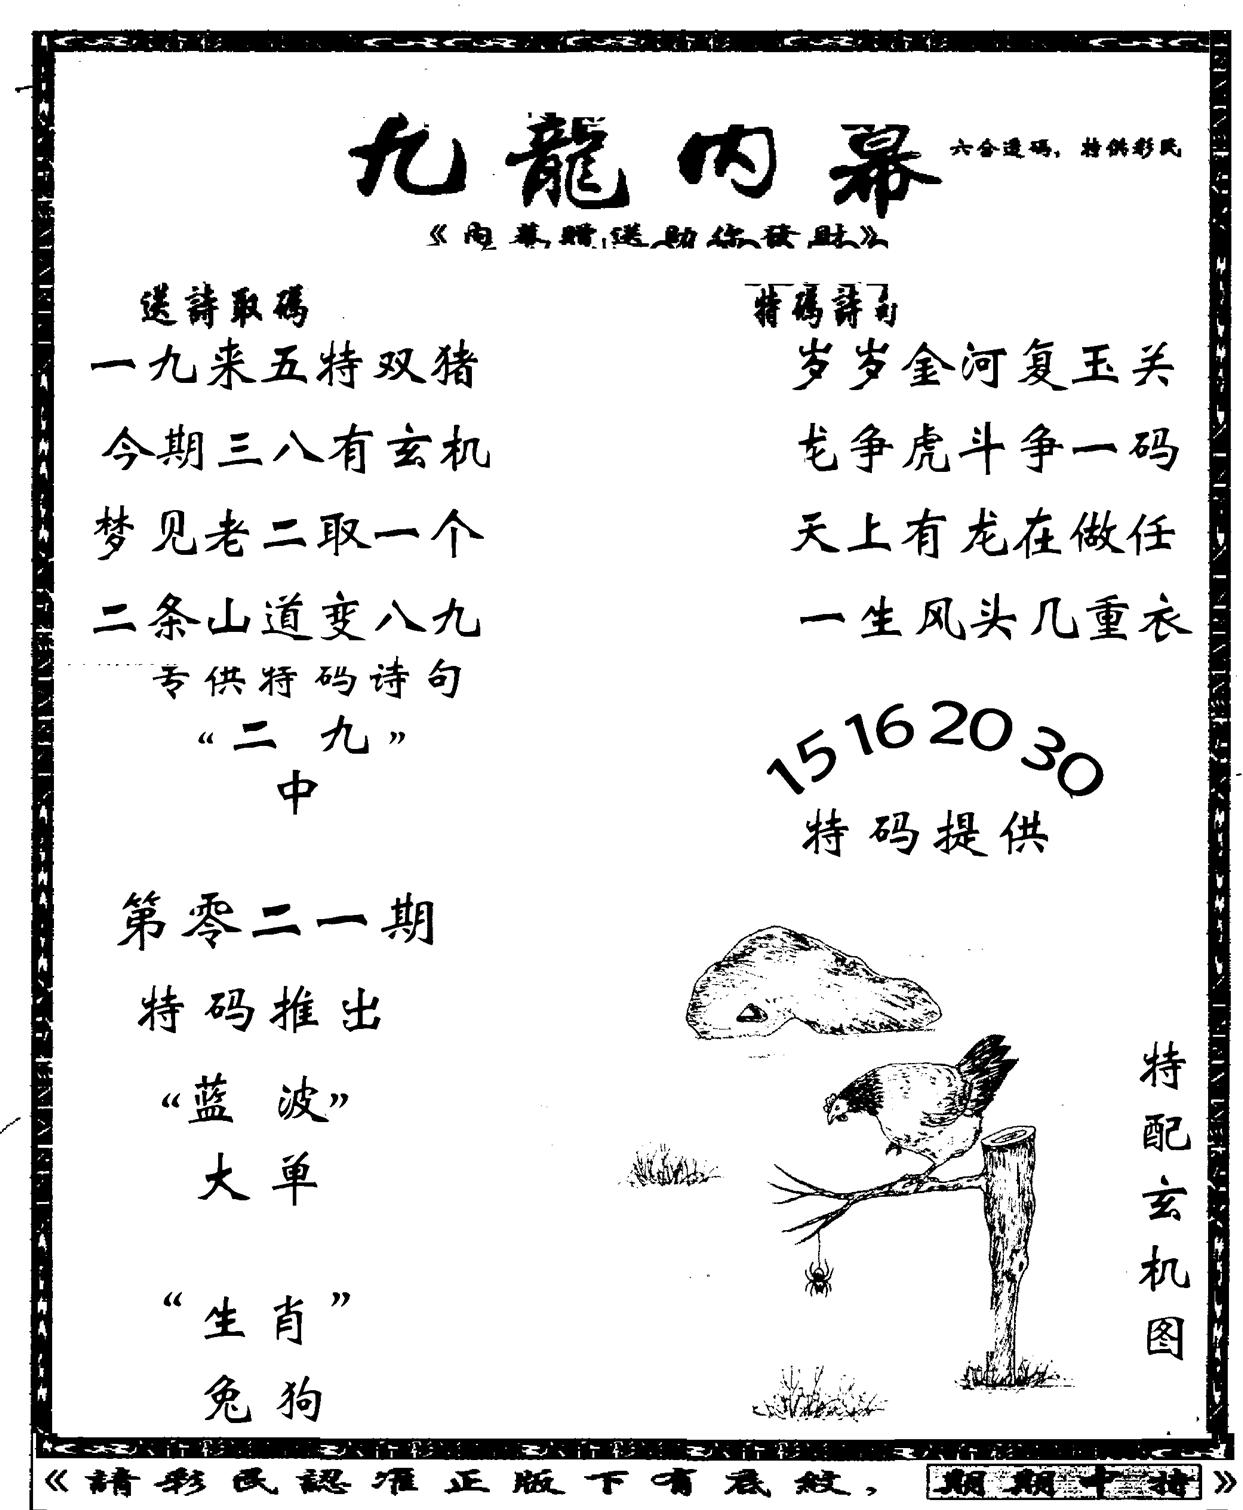 九龍内幕
六合透码，特供彩民
《内幕贈送助你發財》
送詩取碼
一九来五特双猪
今期三八有玄机
梦见老二取一个
二条山道变八九
专供特码诗句
“二 九”
中
第零二一期
特码推出
“蓝 波”
大单
“生肖”
兔狗
特碼詩句
岁岁金河复玉关
龙争虎斗争一码
天上有龙在做任
一生风头几重衣
15 16 20 30
特码提供
特配玄机图
《請彩民認准正版下有底紋，期期中特》